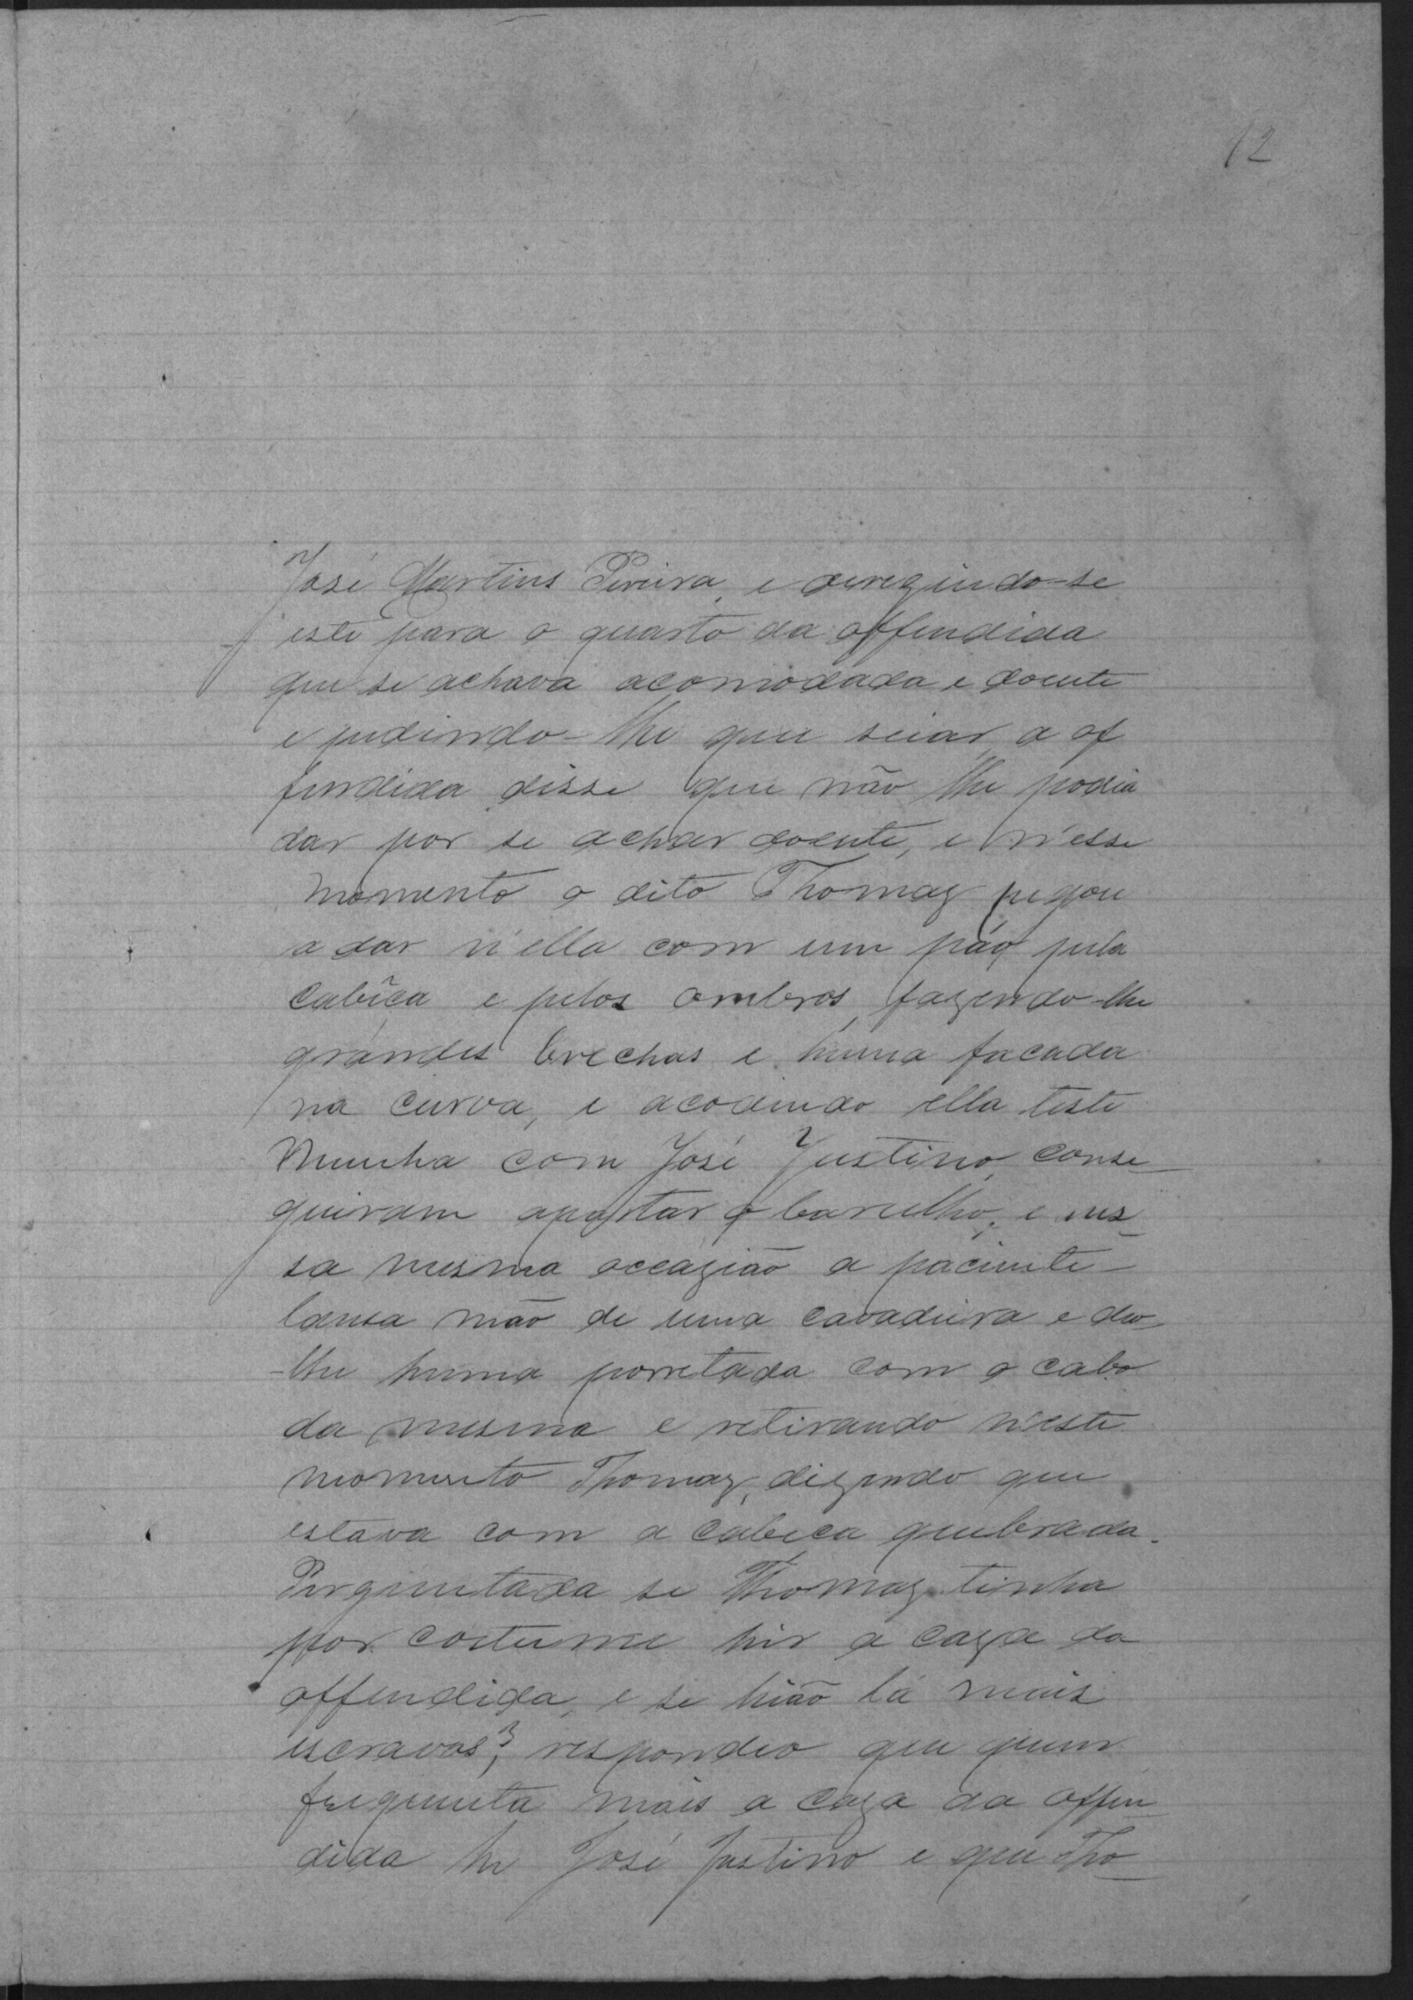 12
José Martins Pereira, e deregindo-se
este para o quarto da offendida
que se achava acomodada e doente
e pedindo-lhe que seiar, a of
fendida disse que não lhe podia
dar por se achar doente, e n'esse
momento o dito Thomaz pegou
a dar n'ella com um páo pela
cabêca e pelos ombros, fazendo-lhe
grandes brechas e huma facada
na curva, e acodindo ella teste
munha com José Justino, conse
guiram apartar o barulho, e nes_
sa mesma occazião a paciente
lansa mão de uma cavadeira e deo_
-lhe huma porretada com o cabo
da mesma e retirando n'este
momento Thomaz, dizendo que
estava com a cabeca quebrada.
Perguntada se Thomaz tinha
por costume hir a caza da
offendida, e se hião lá mais
escravos?, respondeo que quem
frequenta mais a caza da offen_
dida he José Justino e que Tho_